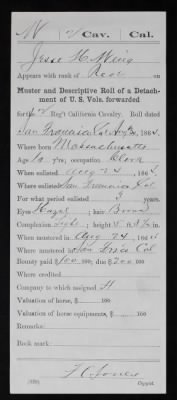 N 2 Cav. Cal.
Jesse H.
Appears with rank of Rec. on
Muster and Descriptive Roll of a Detach-
ment of U. S. Vols. forwarded
for the 2 Reg't California Cavalry. Roll dated
San Francisco Cal. 1864.
Where born Massachusetts
Age y'rs; occupation Clerk
When enlisted Aug 24, 1864.
Where enlisted San Francisco Cal
For what period enlisted 3 years.
Eyes Hazel; hair Brown
Complexion Light; height 5 ft. in.
When mustered in Aug 24, 1864
Where mustered in San Fran Cal
Bounty paid $ 100; due $ 200
Where credited
Company to which assigned H
Valuation of horse, $ 100
Valuation of horse equipments, $ 100
Remarks:
Book mark:
F. C. Jones
Copyist